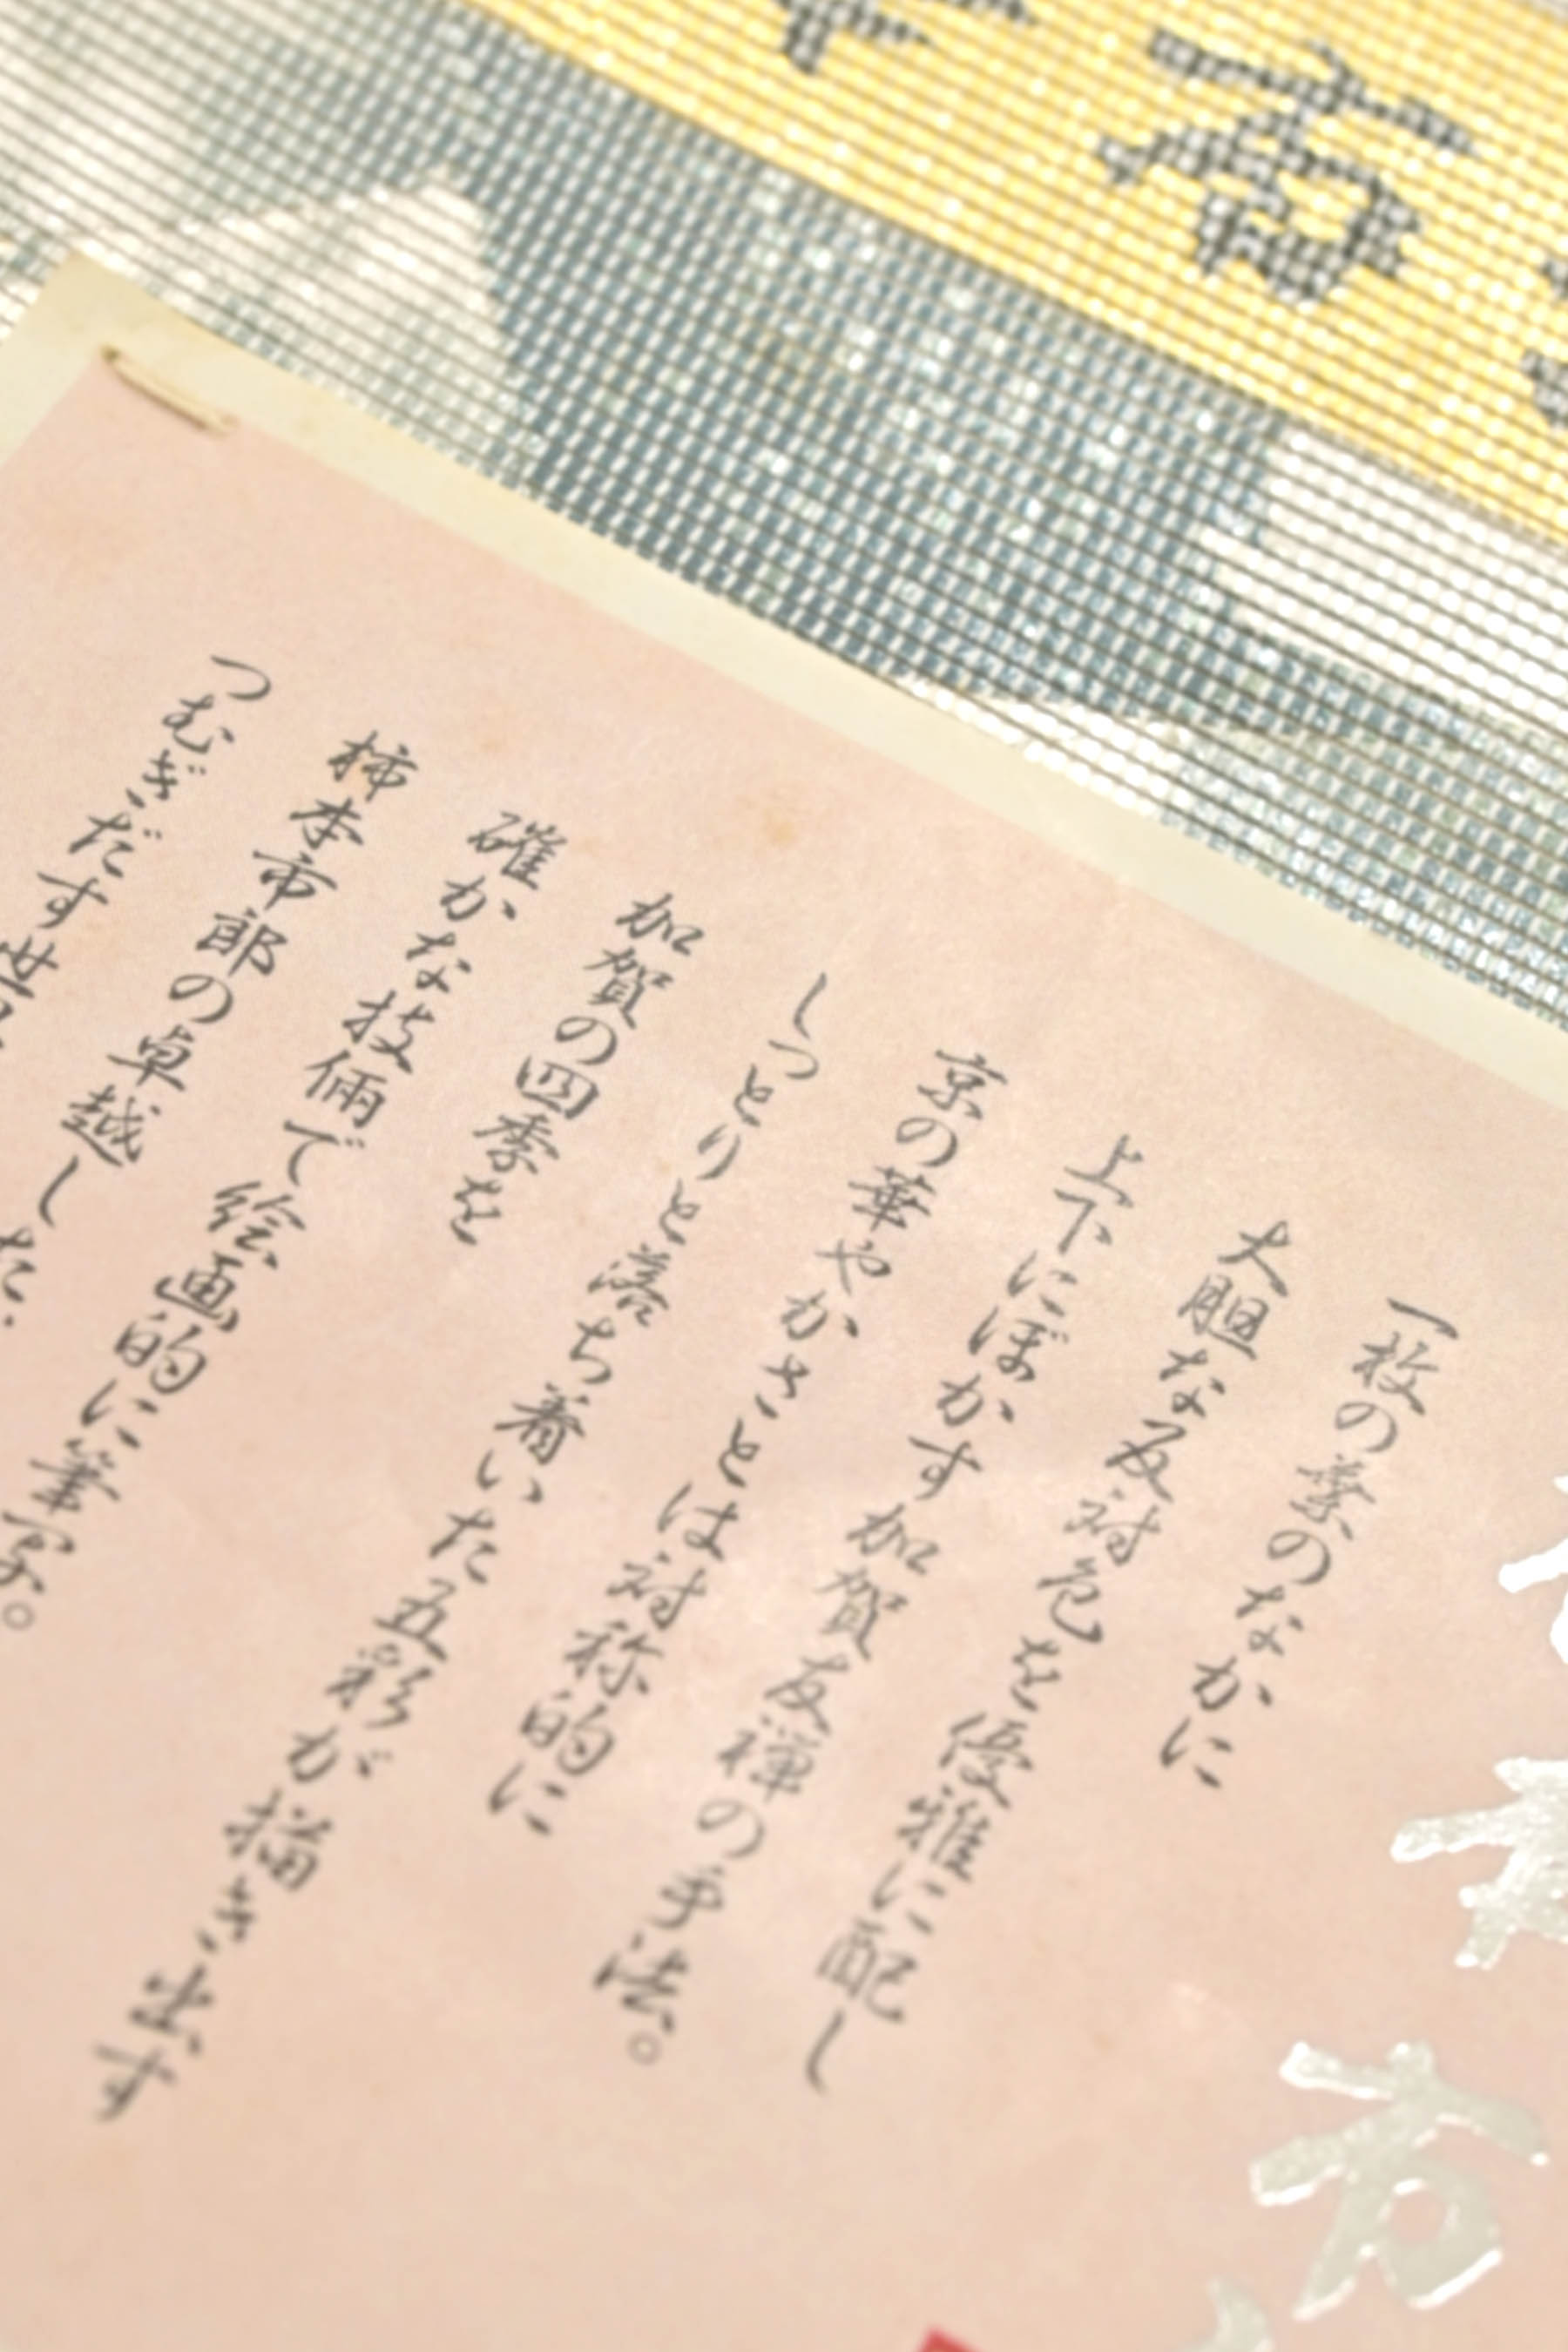 一枚の葉のなかに
大胆な反対色を優雅に配し
上下にぼかす加賀友禅の手法。
京の華やかさとは対称的に
しっとりと落ち着いた五彩が描き出す
加賀の四季を
確かな技倆で絵画的に筆写。
柿本市郎の卓越した
つむぎだす世